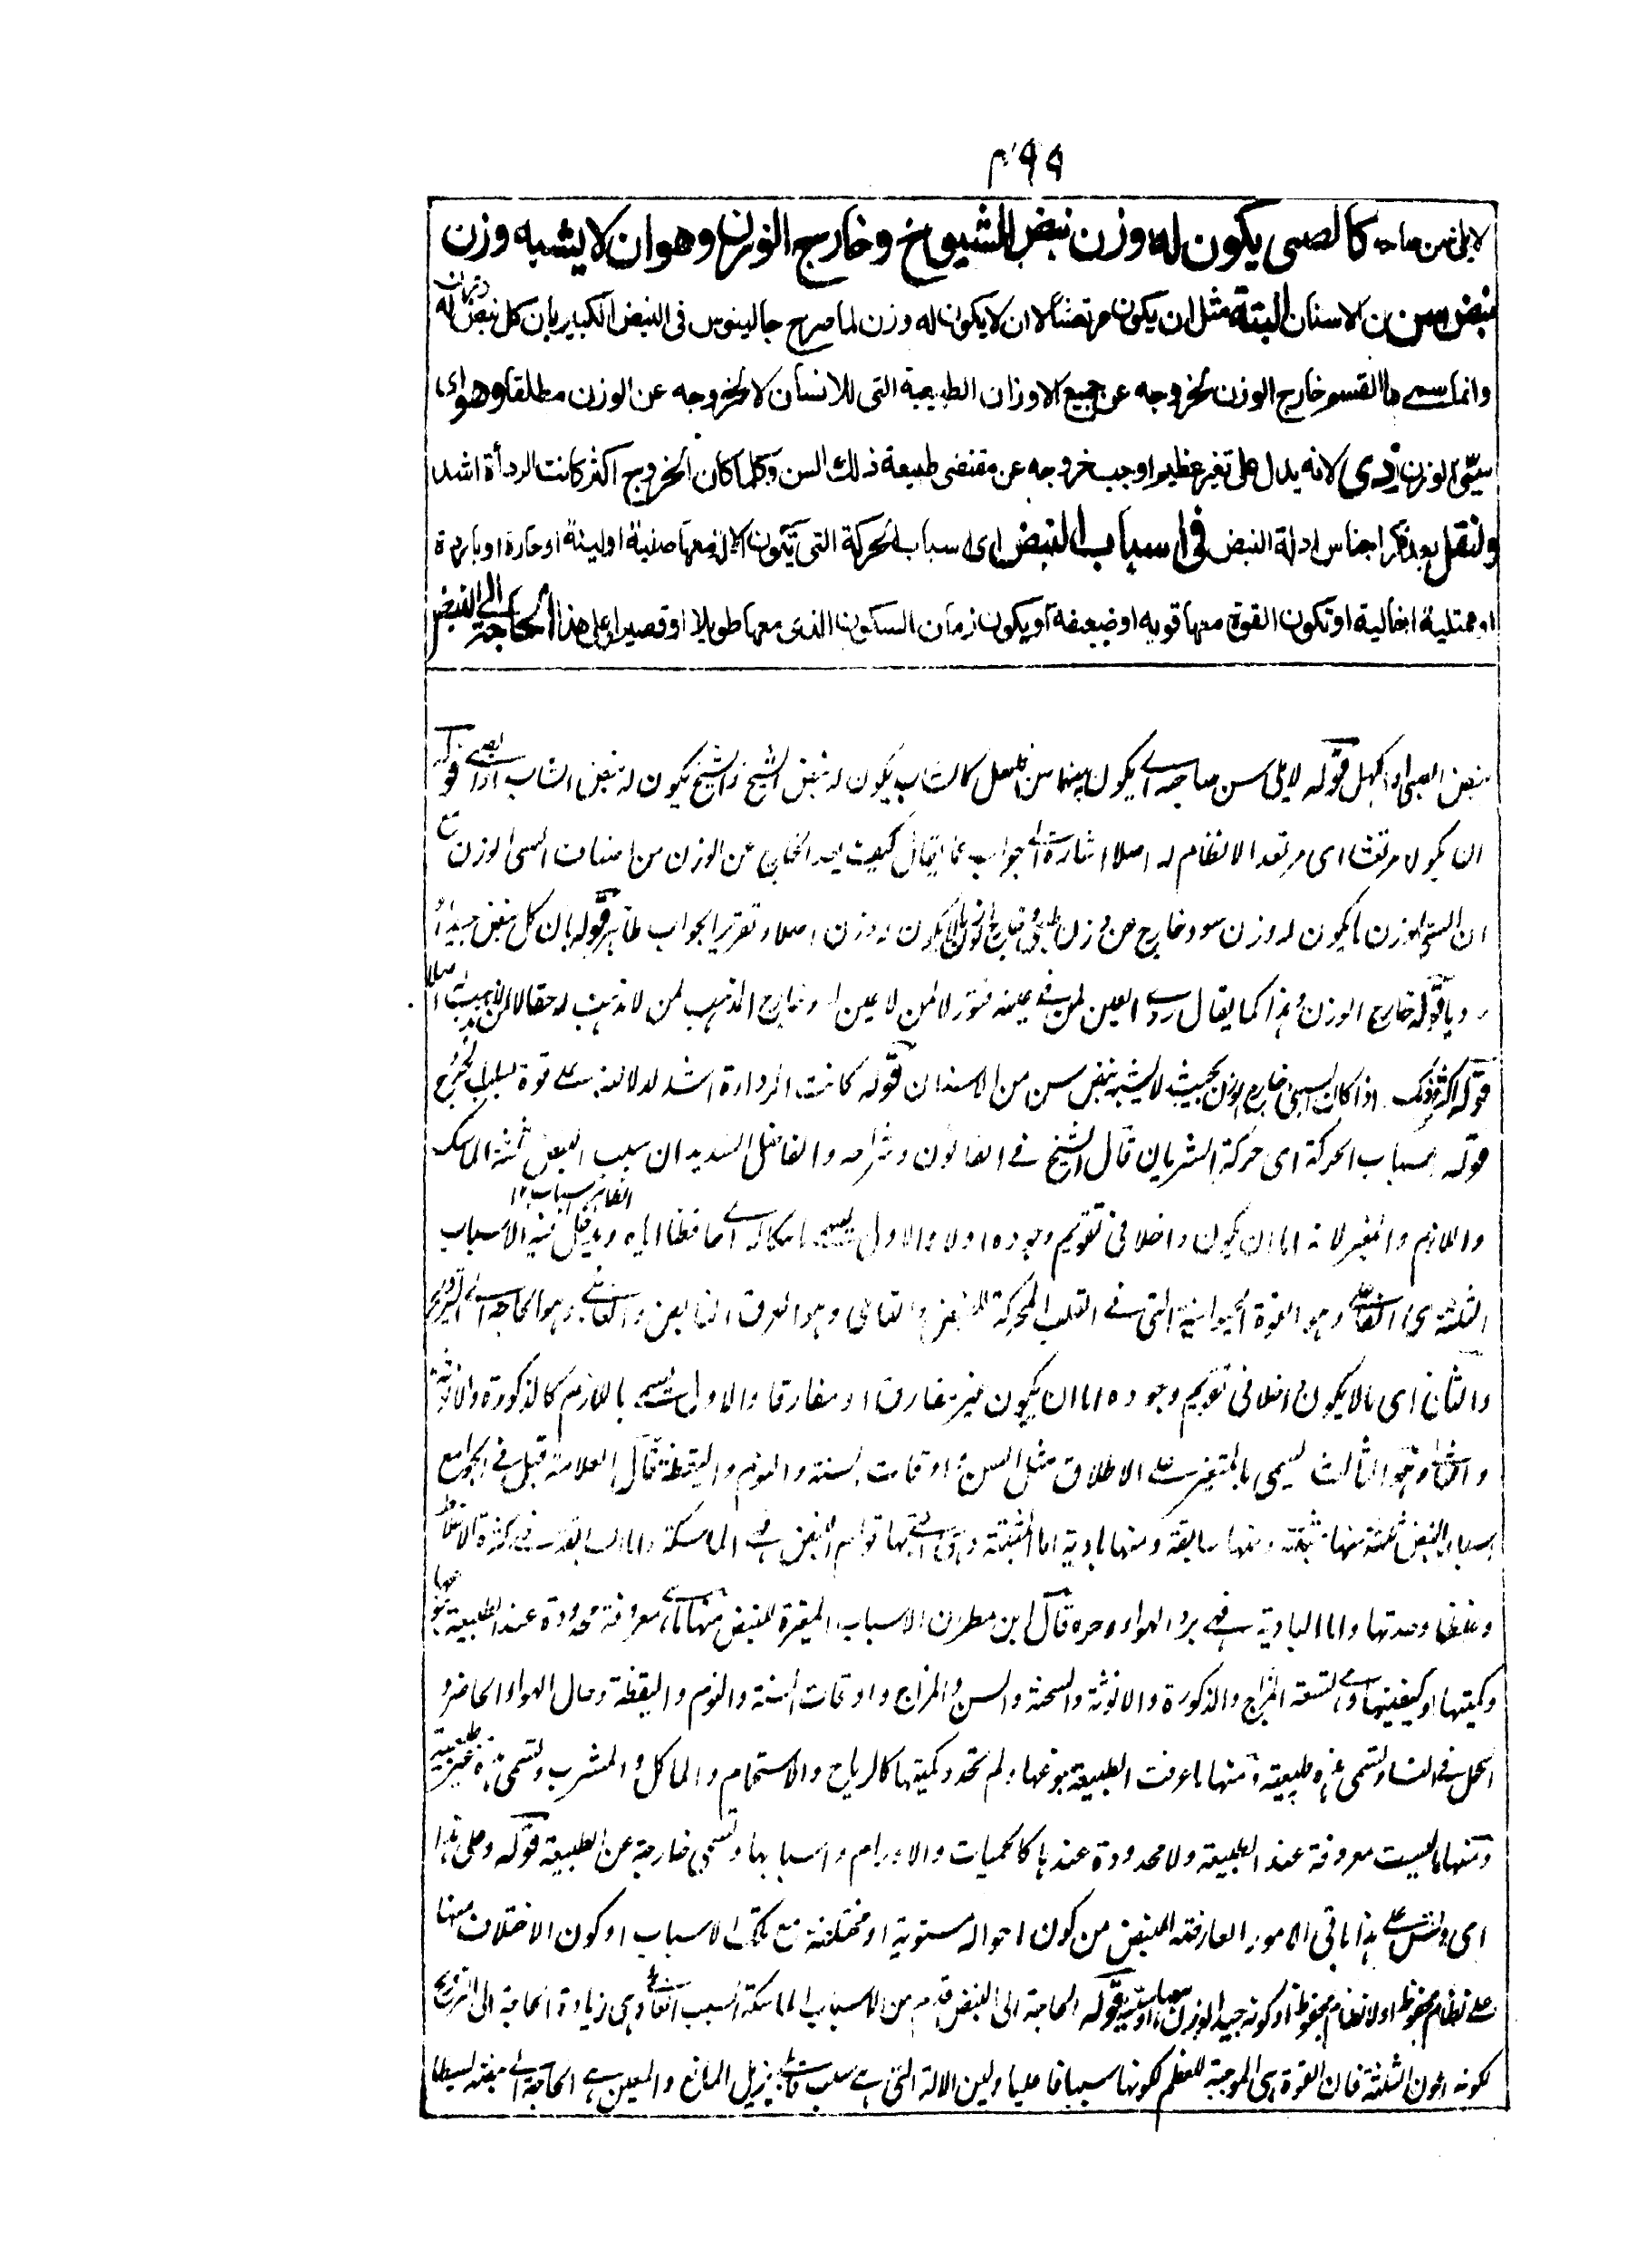 لا يلى سن صاحبه كالصبى يكون له وزن نبض الشيوخ وخارج الوزن وهو ان لا يشبه وزن
نبض سن من الاسنان البتة مثل ان يكون مرتعشا لا ان لا يكون له وزن لما صرح جالينوس فى النبض الكبير بان كل نبض له
وانما سمى هذا القسم خارج الوزن لخروجه عن جميع الاوزان الطبيعية التى للانسان لا لخروجه عن الوزن مطلقا وهو اى
سيّئ الوزن ردى لانه يدل على تغير عظيم اوجب خروجه عن مقتضى طبيعة ذلك السن وكلما كان الخروج اكثر كانت الردأة اشد
ولنقل بعد ذكر اجناس ادلة النبض فى اسباب النبض اى اسباب الحركة التى تكون الالة معها صلبة او لينة او حارة او باردة
او ممتلية او خالية او تكون القوة معها قوية او ضعيفة او يكون زمان السكون الذى معها طويلا او قصيرا وعلى هذا الحاجة الى النبض
نبض الصبى او الكهل قوله لا يلى سن صاحبه اى يكون بينهما سن كالشاب يكون له نبض الشيخ والشيخ يكون له نبض الشاب او الصبى قوله
ان يكون مرتعشا اى مرتعد الا نظام له اصلا اشارة الى جواب عما يقال كيف يعد الخارج عن الوزن من اصناف السيئ الوزن مع
ان السيئ الوزن ما يكون له وزن سوء خارج عن وزن وخارج الوزن ما لا يكون له وزن اصلا وتقرير الجواب ظاهر قوله بان كل نبض جيدا او
رديا قوله خارج الوزن وهذا كما يقال ردى العين لمن فى عينه فتور لا لمن لا عين له وخارج المذهب لمن لا مذهب له حقا لا لمن لا مذهب له اصلا
قوله اكثر وذلك اذا كان خارج الوزن بحيث لا يشبه نبض سن من الاسنان قوله كانت الرداءة اشد لدلالته على قوة سبب الخروج
قوله اسباب الحركة اى حركة الشريان قال الشيخ فى القانون وشراحه والفاضل السديد ان سبب النبض ثلثة الماسك
واللازم والمغير لانه اما ان يكون داخلا فى تقويم وجوده اولا والاول يسمى ماسكا اى حافظا اياه ويدخل فيه الاسباب
الظاهر اسباب ١٢
الثلثة اى الفاعلى وهو القوة الحيوانية التى فى القلب المحركة للنبض والقابلى وهو العرق النابض والغائى وهو الحاجة الى الترويح
والثانى اى ما لا يكون داخلا فى تقويم وجوده اما ان يكون غير مفارق او مفارقا والاول يسمى باللازم كالذكورة والانوثة
والثانى وهو الثالث يسمى بالمغير على الاطلاق مثل السن واوقات السنة والنوم واليقظة قال العلامة قيل فى الجوامع
اسباب النبض ثلثة منها مثبتة ومنها سابقة ومنها بادية اما المثبتة وهى التى بها قوام النبض هى الماسكة واما السابقة فهى كثرة الاخلاط
وغلظها وحدتها واما البادية فهى برد الهواء وحره قال ابن مطران الاسباب المغيرة للنبض منها ما هى معروفة محدودة عند الطبيعة بنوعها
وكميتها وكيفيتها وهى تسعة المزاج والذكورة والانوثة والسحنة والسن والمزاج واوقات السنة والنوم واليقظة وحال الهواء الحاضر و
الحمل فى النساء وتسمى هذه طبيعية ومنها ما عرفت الطبيعة بنوعها ولم تحدد كميتها كالرياح والاستحمام والماكل والمشرب وتسمى هذه غير طبيعية
ومنها ما ليست معروفة عند الطبيعة ولا محدودة عندها كالحميات والاورام واسبابها وتسمى خارجة عن الطبيعة قوله وعلى هذا
اى وقس على هذا باقى الامور العارضة للنبض من كون احواله مستوية او مختلفة مع تلك الاسباب او كون الاختلاف معها
على نظام محفوظ او لا نظام محفوظ او كونه جيد الوزن او سيئه قوله الحاجة الى النبض قدم من الاسباب الماسكة السبب الغائى وهى زيادة الحاجة الى الترويح
لكونه اعون الثلثة فان القوة هى الموجبة للعظم لكونها سببا فاعليا ولين الالة التى هى سبب قابلى يزيل المانع والمعين هى الحاجة